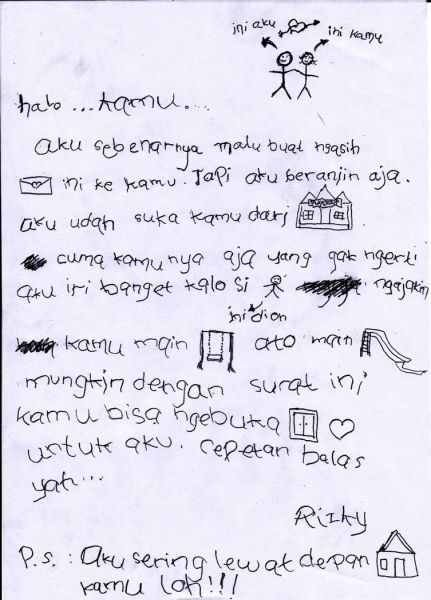 ini aku
ini kamu
halo ... kamu...
aku sebenarnya malu buat ngasih
ini ke kamu. Tapi aku beranjin aja.
aku udah suka kamu dari
cuma kamu nya aja yang gak ngerti
aku iri banget kalo si ngajakin
ini dion
kamu main ato main
mungkin dengan surat ini
kamu bisa ngebuka
untuk aku. cepetan balas
yah...
Rizky
P.s. : Aku sering lewat depan
kamu loh!!!